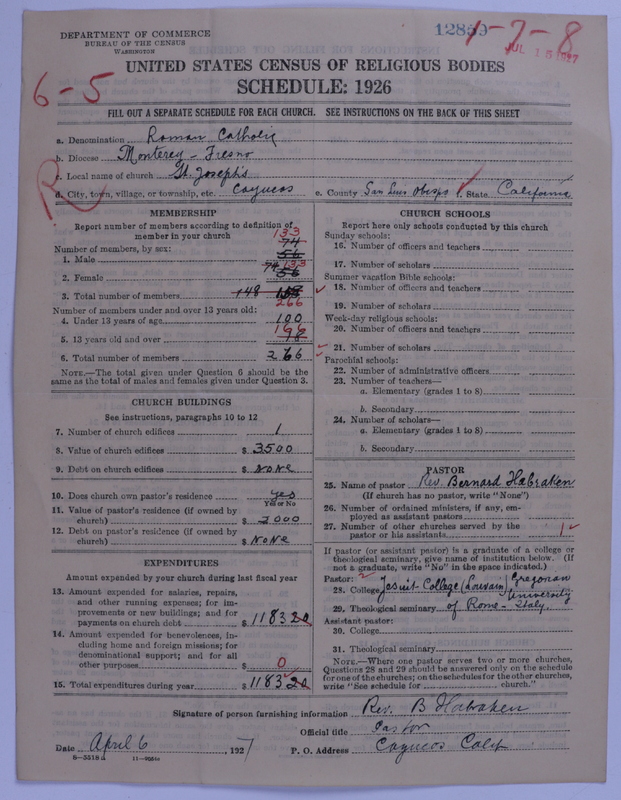 DEPARTMENT OF COMMERCE
BUREAU OF THE CENSUS
WASHINGTON
12859
1-7-8
JUL 15 1927
UNITED STATES CENSUS OF RELIGIOUS BODIES
SCHEDULE: 1926
6-5
FILL OUT A SEPARATE SCHEDULE FOR EACH CHURCH. SEE INSTRUCTIONS ON THE BACK OF THIS SHEET
a. Denomination Roman Catholic
b. Diocese Monterey - Fresno
c. Local name of church St. Joseph's
R
d. City, town, village, or township, etc. Cayucos e. County San Luis Obispo f. State California
MEMBERSHIP
Report number of members according to definition of
member in your church
Number of members, by sex:
133
74
1. Male 56
74 133
2. Female 56
3. Total number of members 148
266
Number of members under and over 13 years old:
4. Under 13 years of age 100
166
5. 13 years old and over 98
6. Total number of members 266
NOTE.—The total given under Question 6 should be the
same as the total of males and females given under Question 3.
CHURCH BUILDINGS
See instructions, paragraphs 10 to 12
7. Number of church edifices 1
8. Value of church edifices $ 3500
9. Debt on church edifices $ None
10. Does church own pastor's residence yes
Yes or No
11. Value of pastor's residence (if owned by
church) $ 2000
12. Debt on pastor's residence (if owned by
church) $ None
EXPENDITURES
Amount expended by your church during last fiscal year
13. Amount expended for salaries, repairs,
and other running expenses; for im-
provements or new buildings; and for
payments on church debt $ 1183 20
14. Amount expended for benevolences, in-
cluding home and foreign missions; for
denominational support; and for all
other purposes $ 0
15. Total expenditures during year $ 1183 20
CHURCH SCHOOLS
Report here only schools conducted by this church
Sunday schools:
16. Number of officers and teachers
17. Number of scholars
Summer vacation Bible schools:
18. Number of officers and teachers
19. Number of scholars
Week-day religious schools:
20. Number of officers and teachers
21. Number of scholars
Parochial schools:
22. Number of administrative officers
23. Number of teachers—
a. Elementary (grades 1 to 8)
b. Secondary
24. Number of scholars—
a. Elementary (grades 1 to 8)
b. Secondary
PASTOR
25. Name of pastor Rev. Bernard Habraken
(If church has no pastor, write "None")
26. Number of ordained ministers, if any, em-
ployed as assistant pastors
27. Number of other churches served by the
pastor or his assistants 1
If pastor (or assistant pastor) is a graduate of a college or
theological seminary, give name of institution below. (If
not a graduate, write "No" in the space indicated.)
Pastor: 2
28. College Jesuit College (Louvain) Gregorian
University
29. Theological seminary of Rome - Italy.
Assistant pastor:
30. College
31. Theological seminary
NOTE.—Where one pastor serves two or more churches,
Questions 28 and 29 should be answered only on the schedule
for one of the churches; on the schedules for the other churches,
write "See schedule for church."
Signature of person furnishing information Rev. B Habraken
Official title Pastor
Date April 6 1927 P. O. Address Cayucos Calif
8-3518a 11-9551a